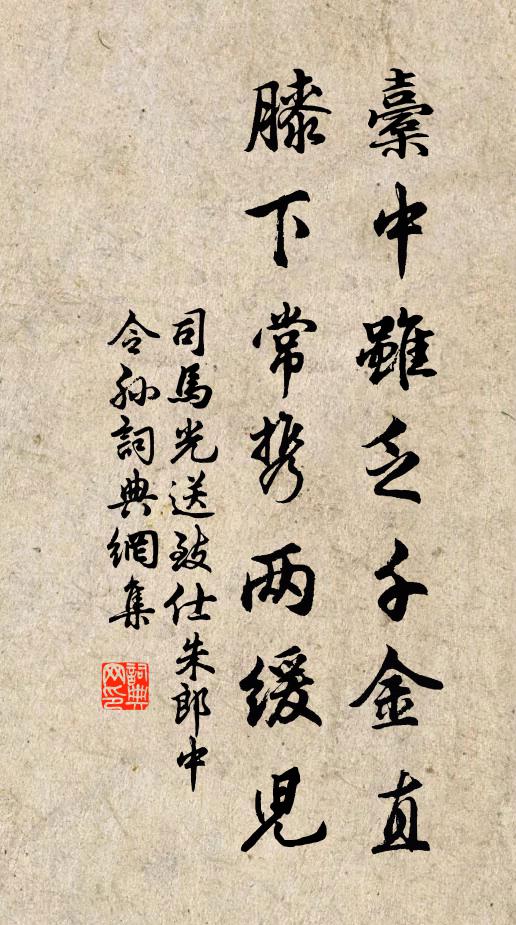 橐中雖乏千金直
膝下常携两緩兒
司馬光送致仕朱郎中
令孫詞典網集
詞典
网印